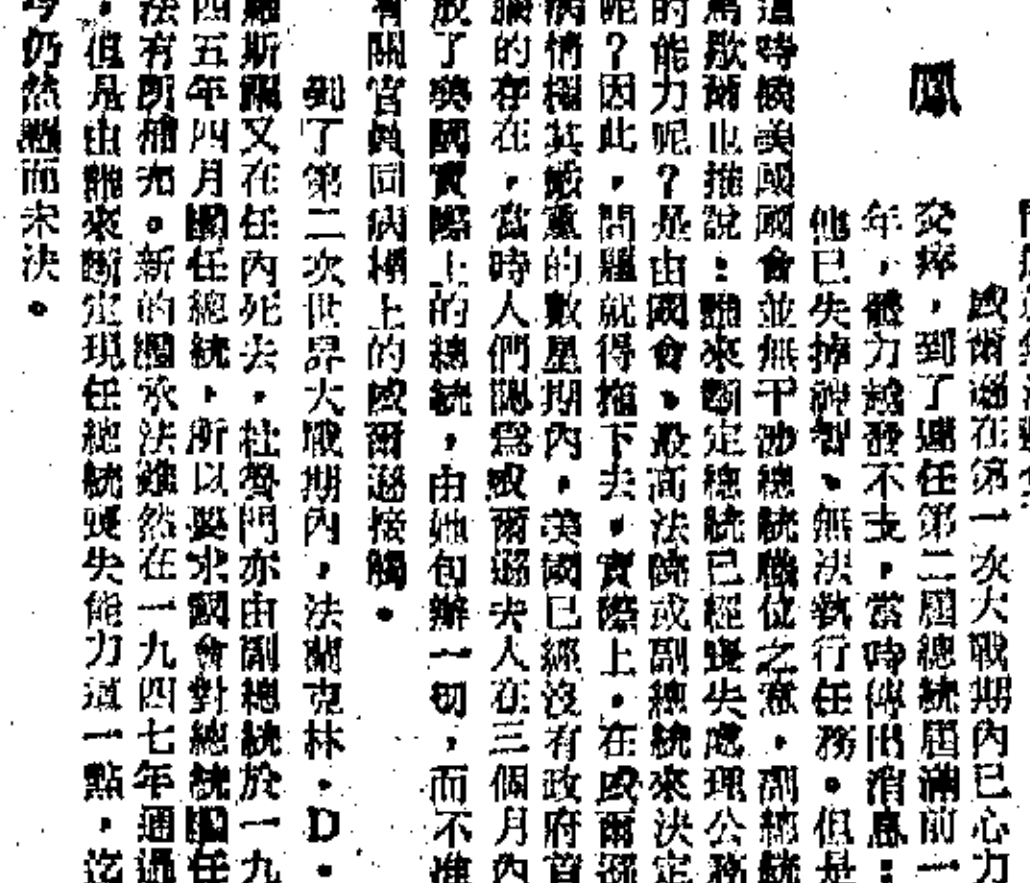 鳳
威爾遜在第一次大戰期內已心力
交瘁,到了連任第二屆總統屆滿前一
年,體力越發不支,當時傳出消息:
他已失掉神智、無法執行任務。但是
這時候美國國會並無干涉總統職位之意,副總統
馬歇爾也推說:誰來斷定總統已經喪失處理公務
的能力呢?是由國會、最高法院或副總統來決定
呢?因此,問題就得拖下去,實際上,在威爾遜
病情極其嚴重的數星期內,美國已經沒有政府首
腦的存在,當時人們認為威爾遜夫人在三個月內
成了美國實際上的總統,由她包辦一切,而不准
有關官員同病榻上的威爾遜接觸。
到了第二次世界大戰期內,法蘭克林・D・
羅斯福又在任內死去,杜魯門亦由副總統於一九
四五年四月繼任總統,所以要求國會對總統繼任
法有所補充。新的繼承法雖然在一九四七年通過
,但是由誰來斷定現任總統喪失能力這一點,迄
今仍然懸而未決。